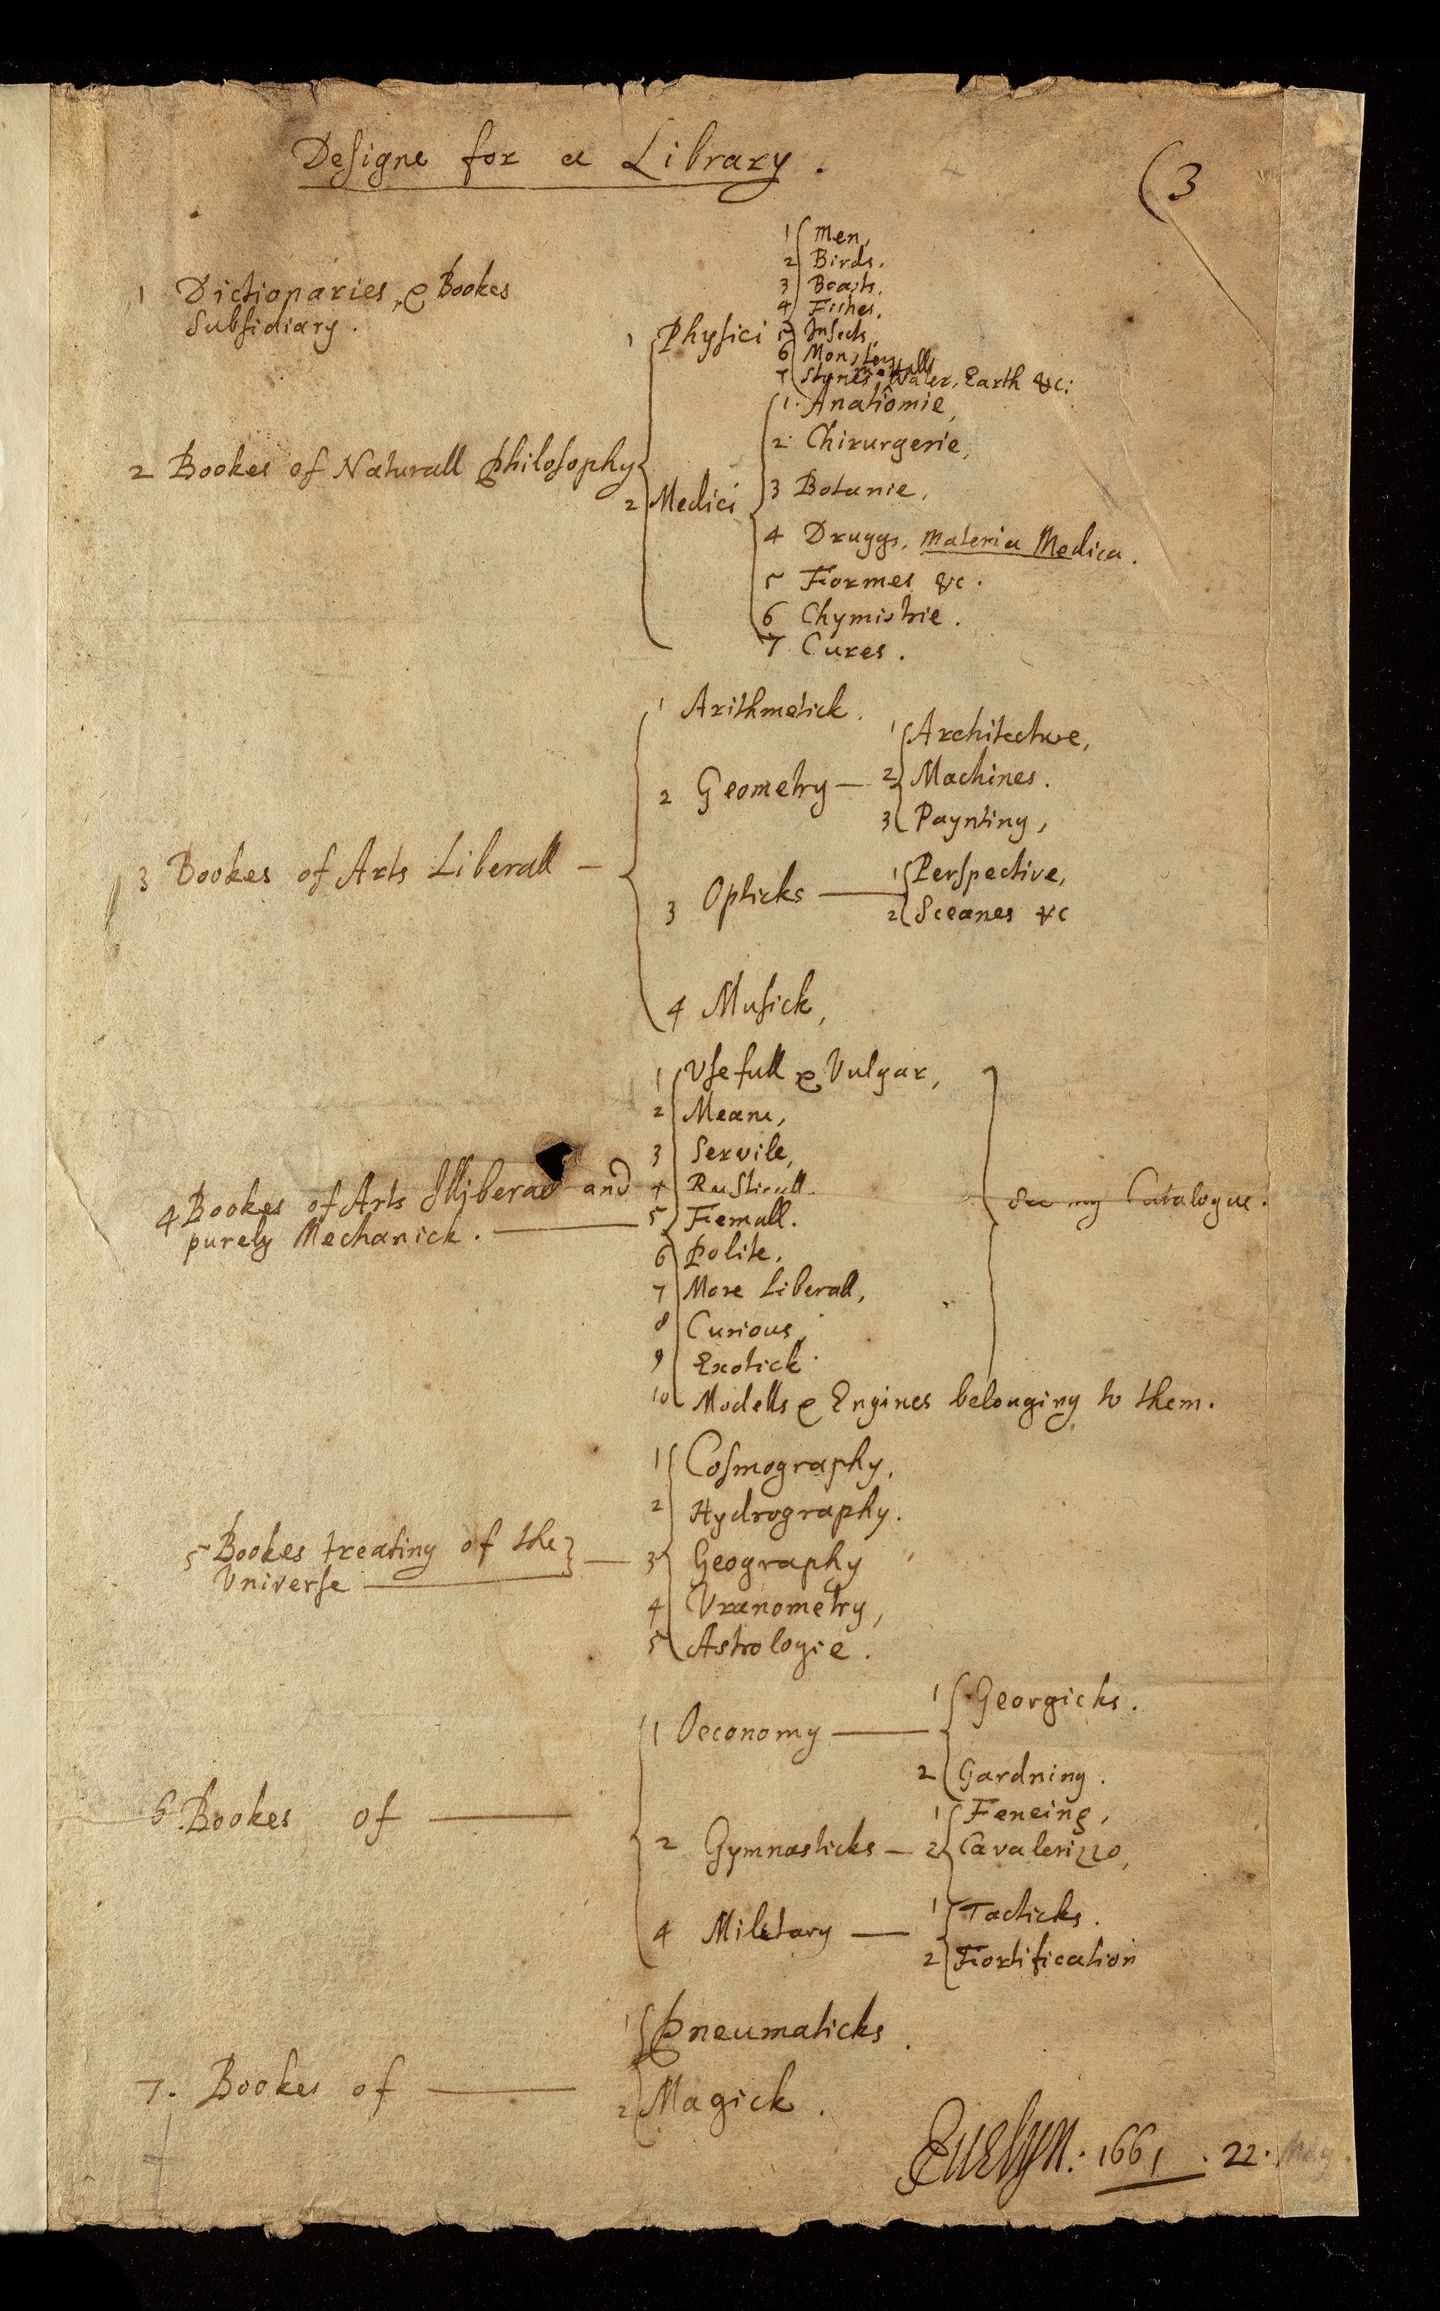 Designe for a Library.
(3
1 Dictionaries, & Bookes
Subsidiary.
2 Bookes of Naturall Philosophy
1 Physici
1 Men,
2 Birds.
3 Beasts.
4 Fishes.
5 Insects,
6 Monsters,
7 Stones, Metalls Water, Earth &c:
2 Medici
1. Anatomie,
2. Chirurgerie,
3 Botanie,
4 Druggs, Materia Medica.
5 Formes &c.
6 Chymistrie.
7 Cures.
3 Bookes of Arts Liberall —
1 Arithmetick.
2 Geometry —
1 Architecture,
2 Machines.
3 Paynting,
3 Opticks —
1 Perspective,
2 Sceanes &c
4 Musick,
4 Bookes of Arts Illiberall and
purely Mechanick. —
1 Usefull & Vulgar,
2 Meane,
3 Servile,
4 Rusticall.
5 Femall.
6 Polite.
7 More Liberall,
8 Curious,
9 Exotick.
10 Modells & Engines belonging to them.
See my Catalogue.
5 Bookes treating of the
Universe —
1 Cosmography,
2 Hydrography.
3 Geography
4 Vranometry,
5 Astrologie.
6 Bookes of —
1 Oeconomy —
1 Georgicks.
2 Gardning.
2 Gymnasticks —
1 Fencing,
2 Cavalerizzo,
4 Miletary —
1 Tacticks.
2 Fortification
7. Bookes of —
1 Pneumaticks.
2 Magick.
Evelyn: 1661. 22. May.